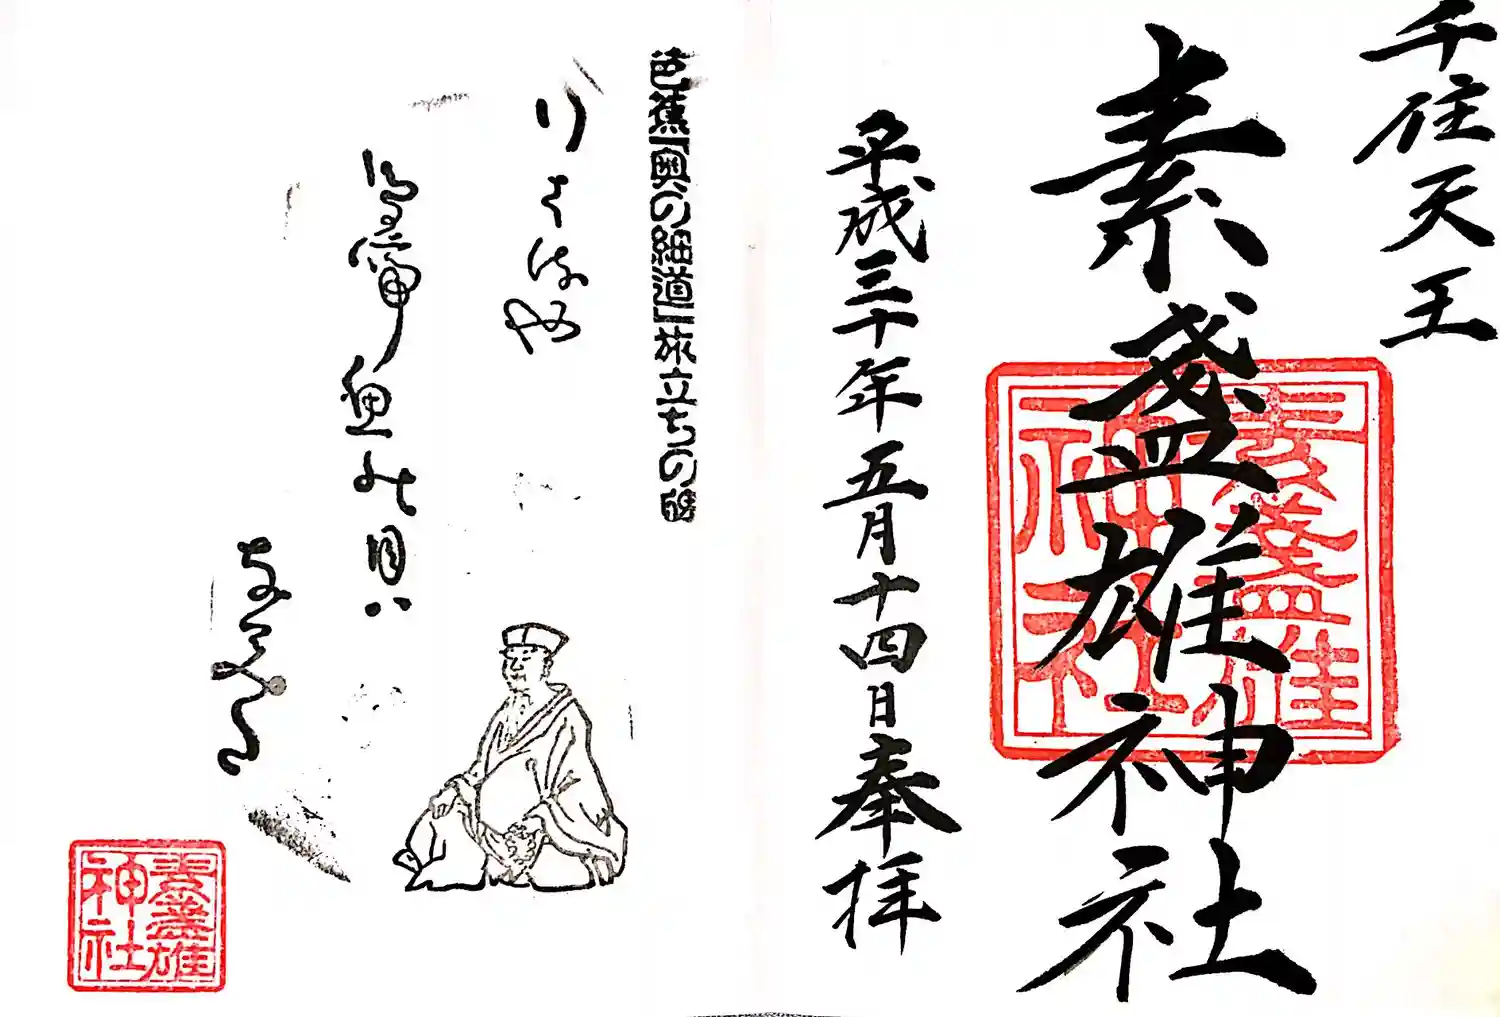 千住天王
素盞雄神社
平成三十年五月十四日奉拝
素盞雄
神社
芭蕉「奥の細道」旅立ちの碑
行くはるや
鳥啼魚の目ハ
なみだ
素盞雄
神社